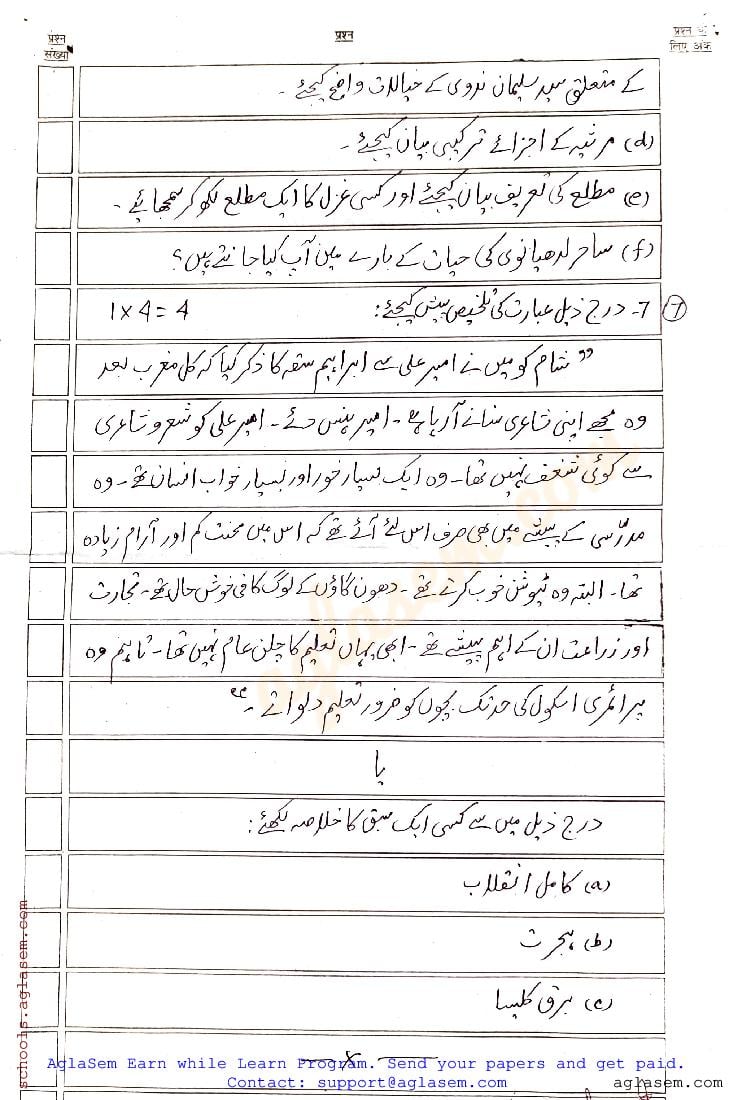 प्रश्न संख्या
प्रश्न
प्रश्न के लिए अंक
کے متعلق سید سلیمان ندوی کے خیالات واضح کیجئے۔
(d) مرثیہ کے اجزائے ترکیبی بیان کیجئے۔
(e) مطلع کی تعریف بیان کیجئے اور کسی غزل کا ایک مطلع لکھ کر سمجھائیے۔
(f) ساحر لدھیانوی کی حیات کے بارے میں آپ کیا جانتے ہیں؟
7 7- درج ذیل عبارت کی تلخیص پیش کیجئے: 1 x 4 = 4
”شام کو میں نے امیر علی سے ابراہیم سقہ کا ذکر کیا کہ کل مغرب بعد
وہ مجھے اپنی شاعری سنانے آ رہا ہے۔ امیر ہنس دئے۔ امیر علی کو شعر و شاعری
سے کوئی شغف نہیں تھا۔ وہ ایک بسیار خور اور بسیار خواب انسان تھے۔ وہ
مدرّسی کے پیشے میں بھی صرف اس لئے آئے تھے کہ اس میں محنت کم اور آرام زیادہ
تھا۔ البتہ وہ ٹیوشن خوب کرتے تھے۔ دھون گاؤں کے لوگ کافی خوش حال تھے۔ تجارت
اور زراعت ان کے اہم پیشے تھے۔ ابھی یہاں تعلیم کا چلن عام نہیں تھا۔ تاہم وہ
پرائمری اسکول کی حد تک بچوں کو ضرور تعلیم دلواتے۔“
یا
درج ذیل میں سے کسی ایک سبق کا خلاصہ لکھئے:
(a) کامل انقلاب
(b) ہجرت
(c) برق کلیسا
— x —
AglaSem Earn while Learn Program. Send your papers and get paid.
Contact: support@aglasem.com
aglasem.com
schools.aglasem.com
aglasem.com